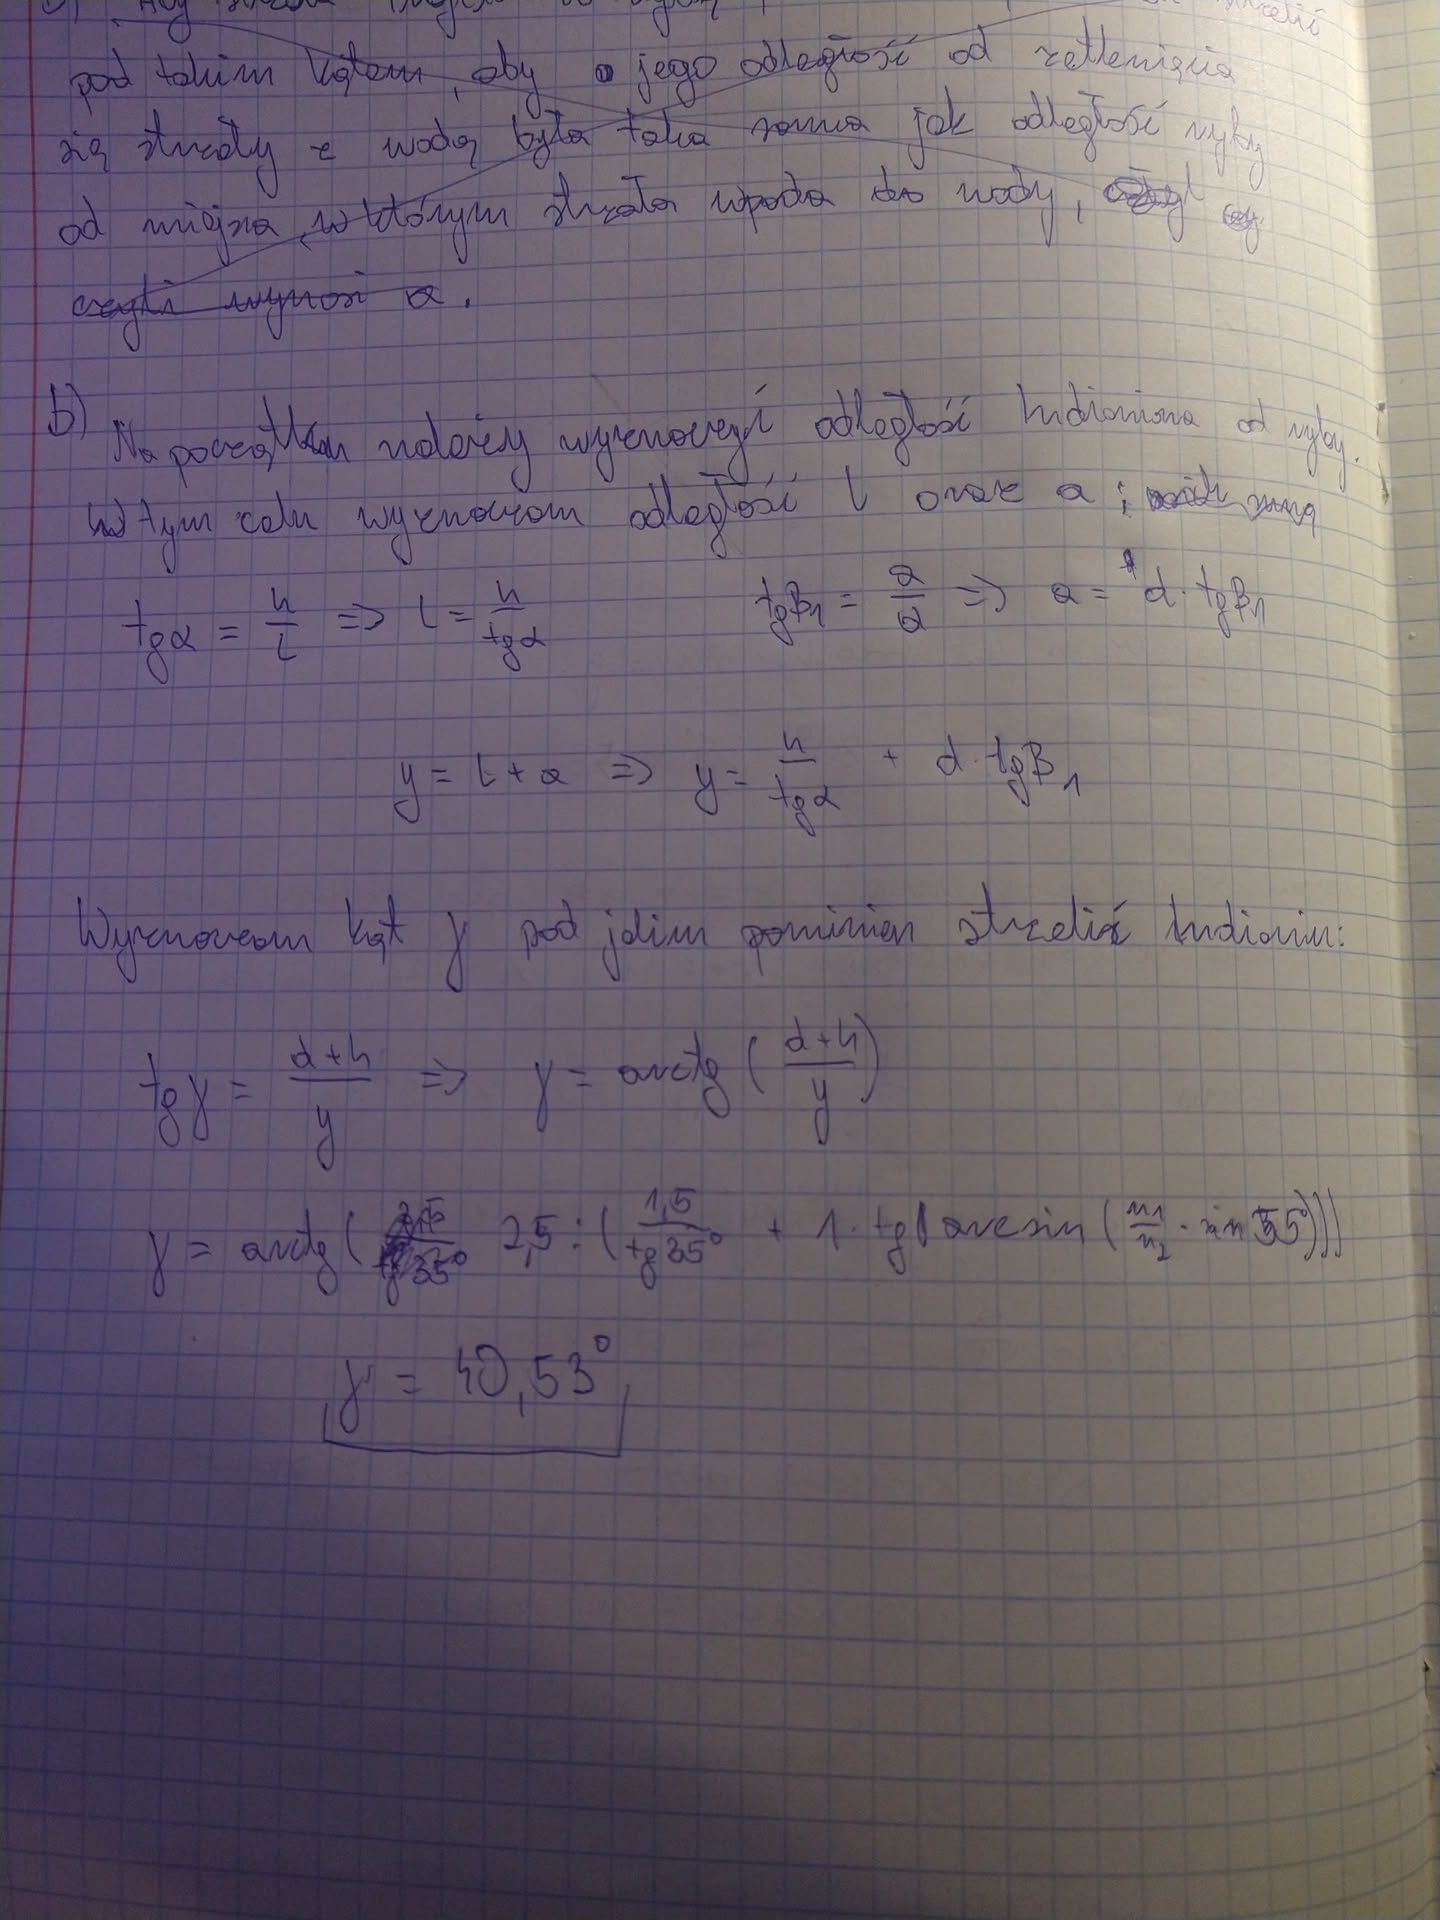 pod takim kątem, aby jego odległość od zetknięcia
się strzały z wodą była taka sama jak odległość ryby
od miejsca, w którym strzała wpada do wody,
czyli wynosi a.
b) Na początku należy wyznaczyć odległość Indianina od ryby.
W tym celu wyznaczam odległość l oraz a;
tgα = h/l => l = h/tgα tgβ₁ = a/d => a = d · tgβ₁
y = l + a => y = h/tgα + d · tgβ₁
Wyznaczam kąt γ pod jakim powinien strzelić Indianin:
tgγ = (d+h)/y => γ = arctg((d+h)/y)
γ = arctg(2,5 : (1,5/tg35° + 1 · tg(arcsin(n₁/n₂ · sin 55°)))
γ = 40,53°